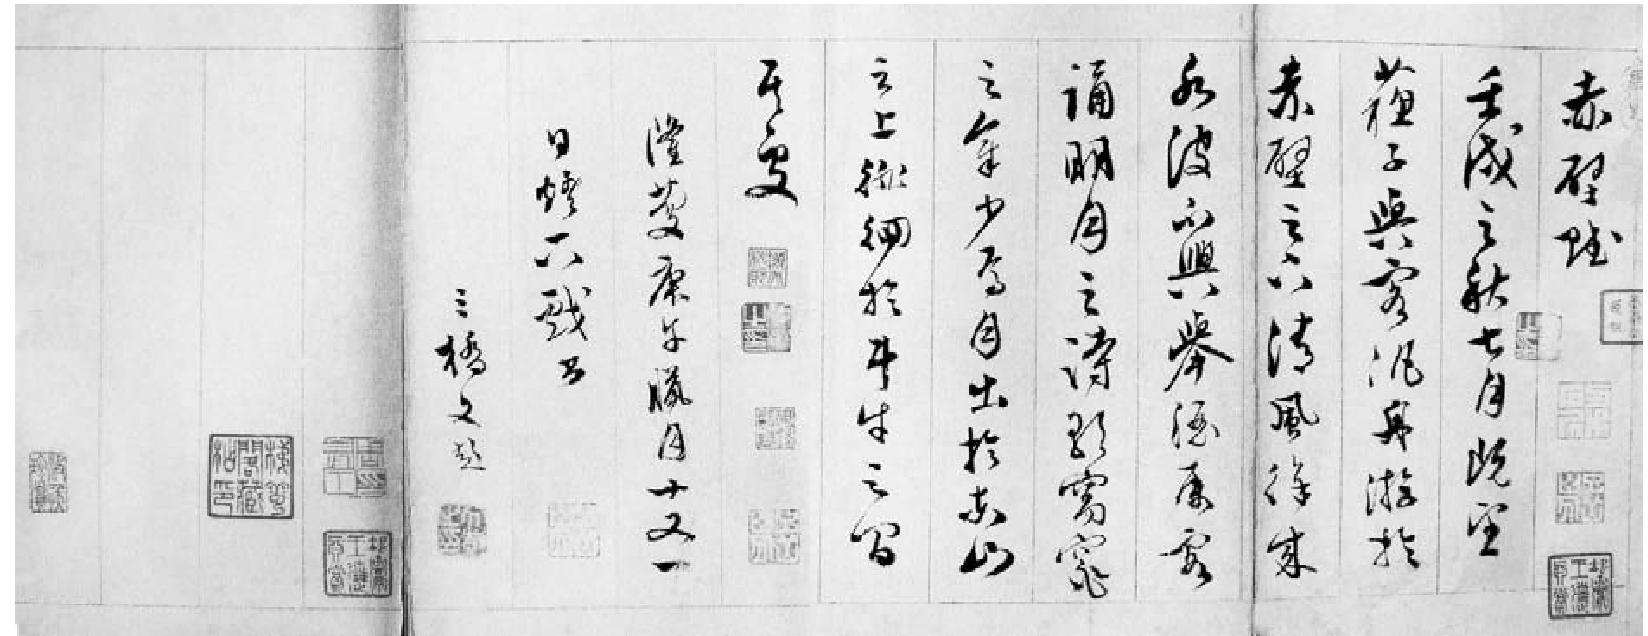 赤壁賦
壬戌之秋七月既望
蘇子與客泛舟游於
赤壁之下清風徐来
水波不興舉酒属客
誦明月之詩歌窈窕
之章少焉月出於東山
之上徘徊於斗牛之間
隆慶庚午臘月十又一
日燈下戲書
三橋文彭